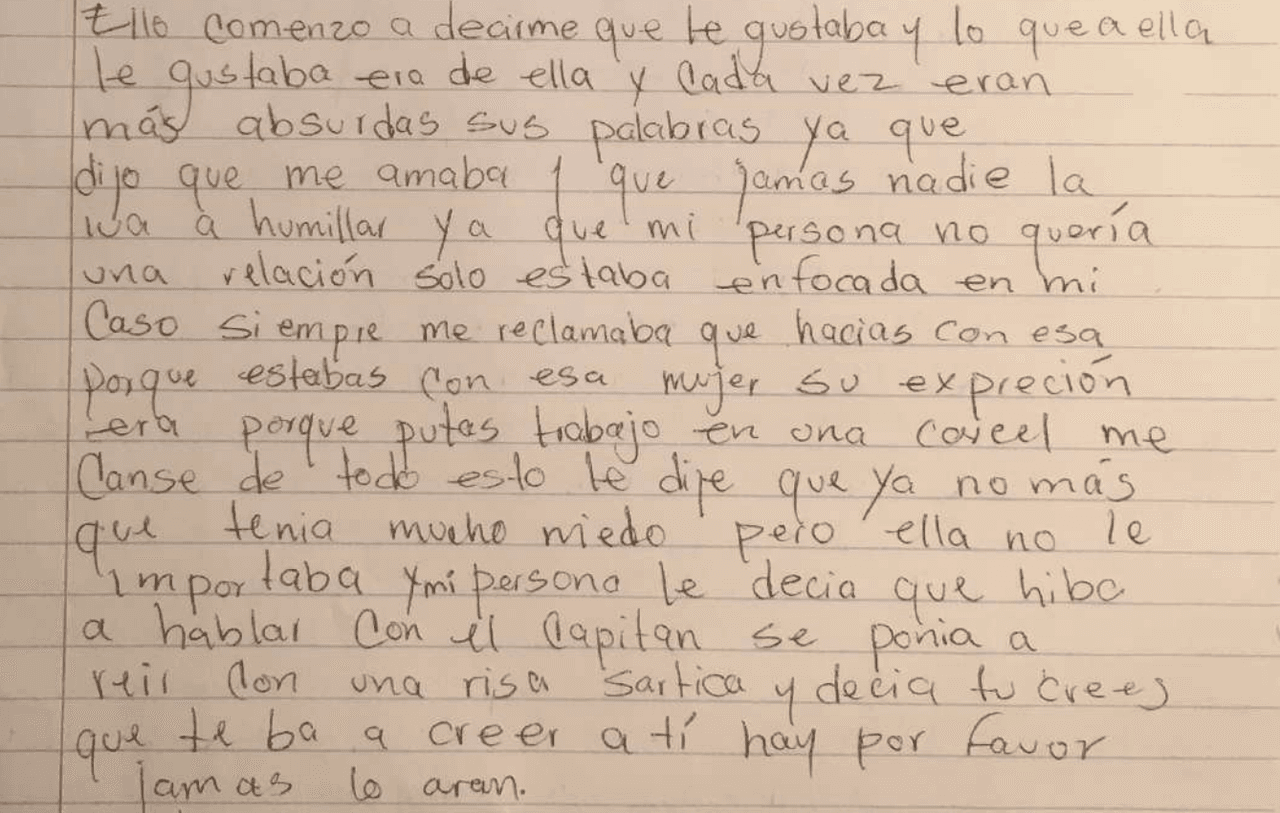 Ella comenzo a decirme que le gustaba y lo que a ella
le gustaba era de ella y Cada vez eran
más absurdas sus palabras ya que
dijo que me amaba y que jamas nadie la
iva a humillar ya que mi persona no quería
una relación solo estaba enfocada en mi
Caso Siempre me reclamaba que hacias con esa
porque estabas con esa mujer su expreción
era porque putas trabajo en una carcel me
Canse de todo esto le dije que ya no más
que tenia mucho miedo pero ella no le
importaba y mi persona le decia que hiba
a hablar Con el Capitan se ponia a
reir Con una risa sartica y decia tu crees
que te ba a creer a tí hay por favor
jamas lo aran.